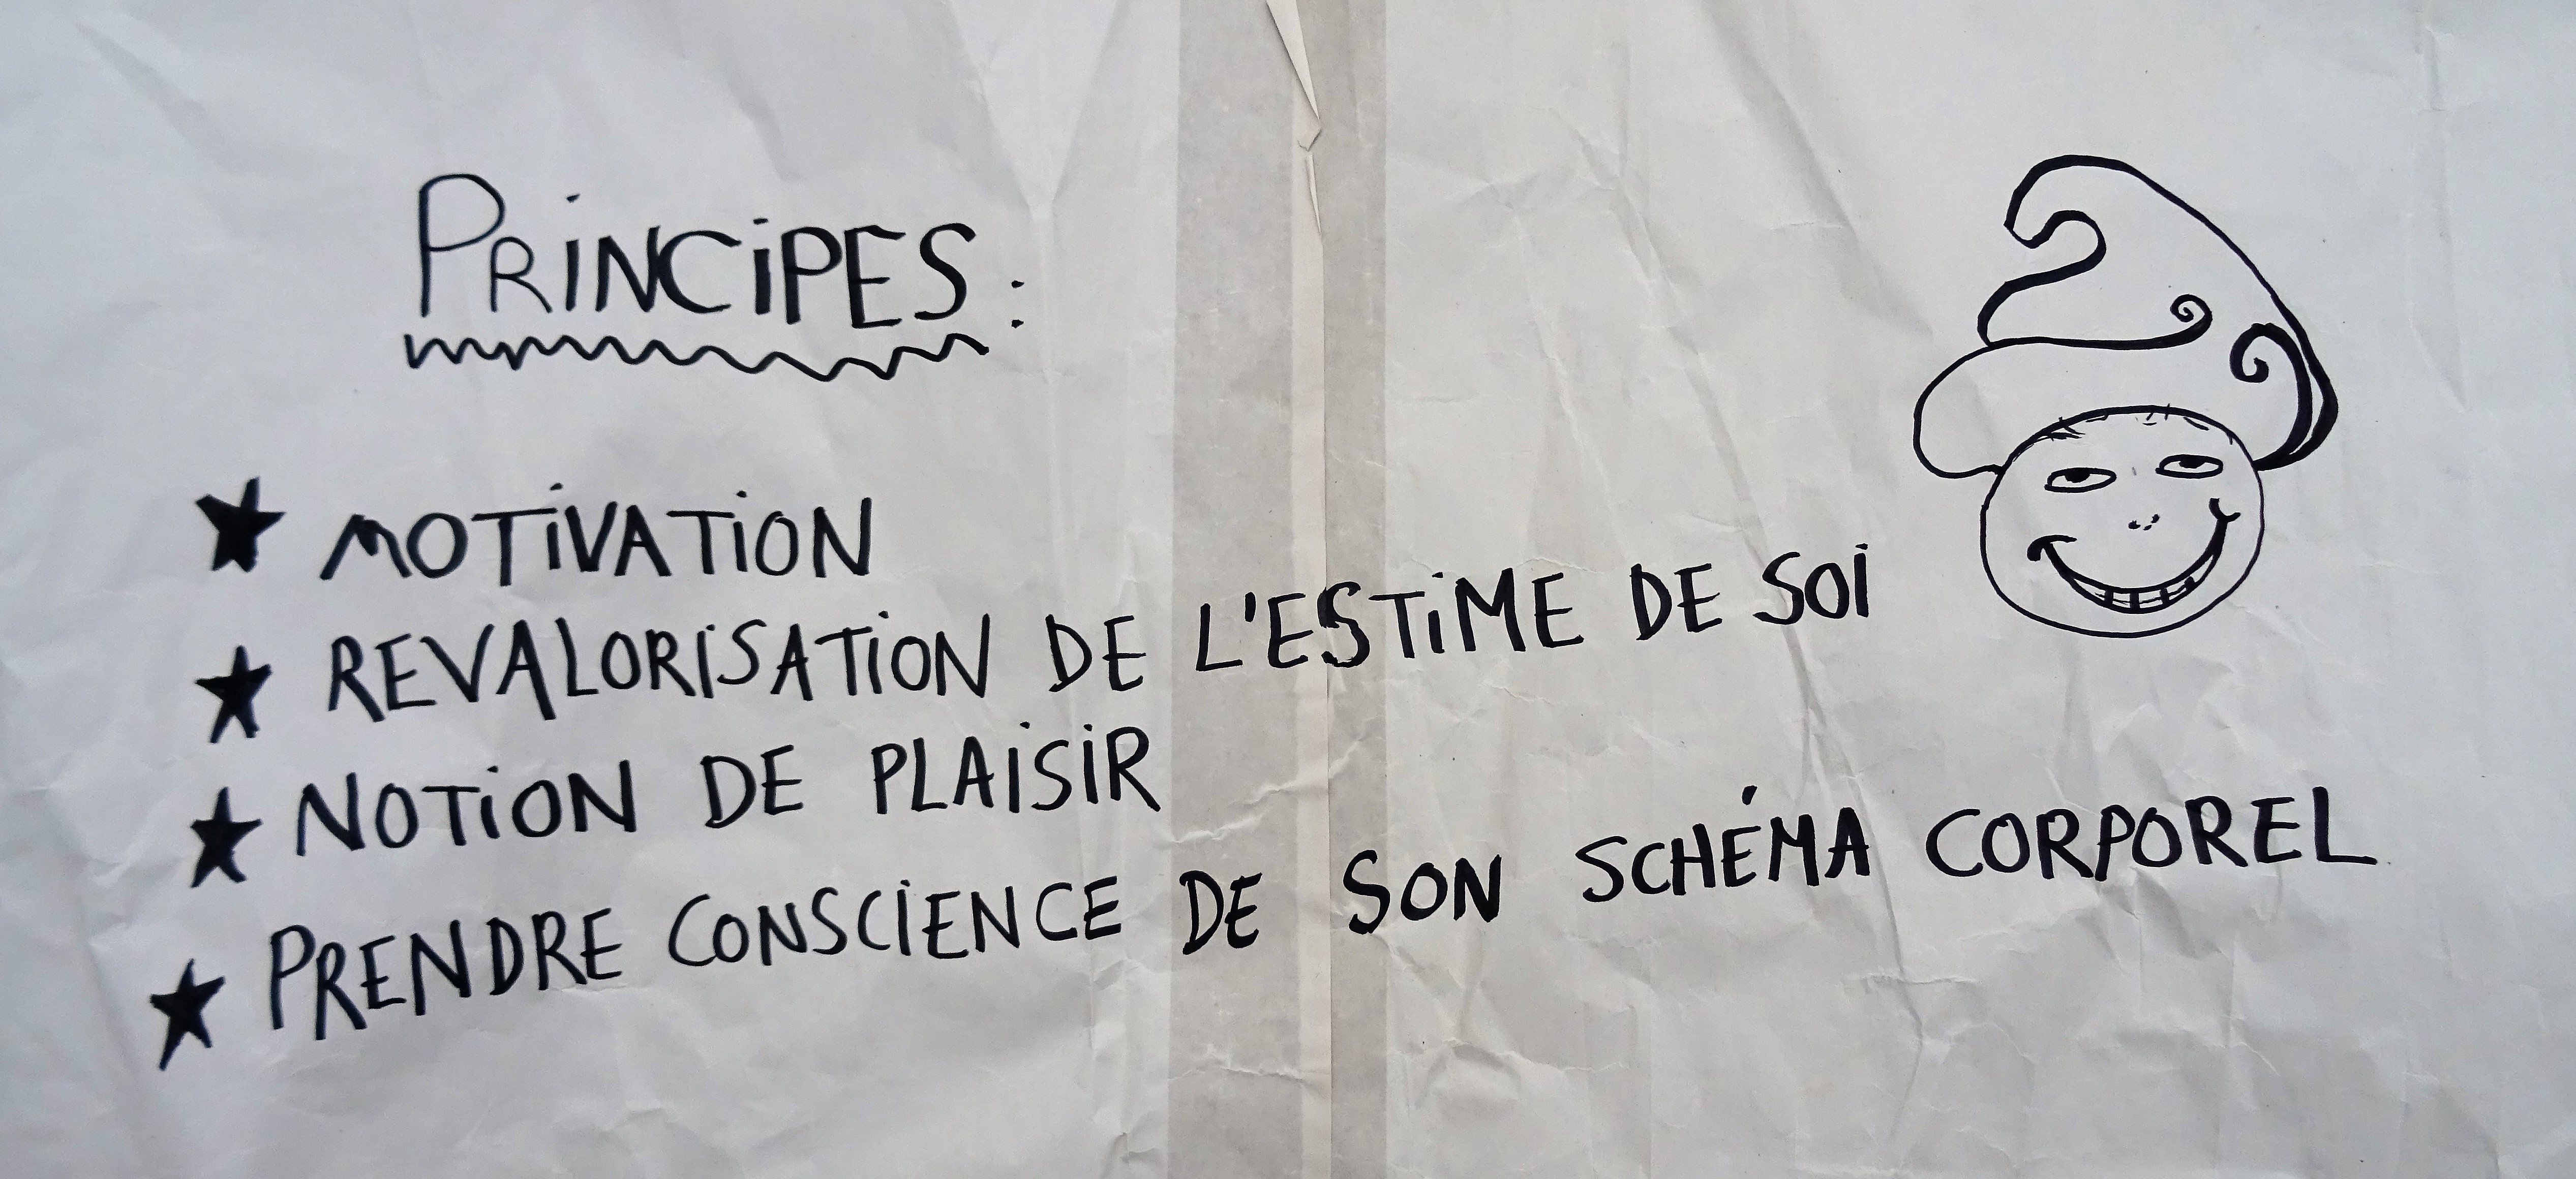 PRINCIPES :
★ MOTIVATION
★ REVALORISATION DE L'ESTIME DE SOI
★ NOTION DE PLAISIR
★ PRENDRE CONSCIENCE DE SON SCHÉMA CORPOREL